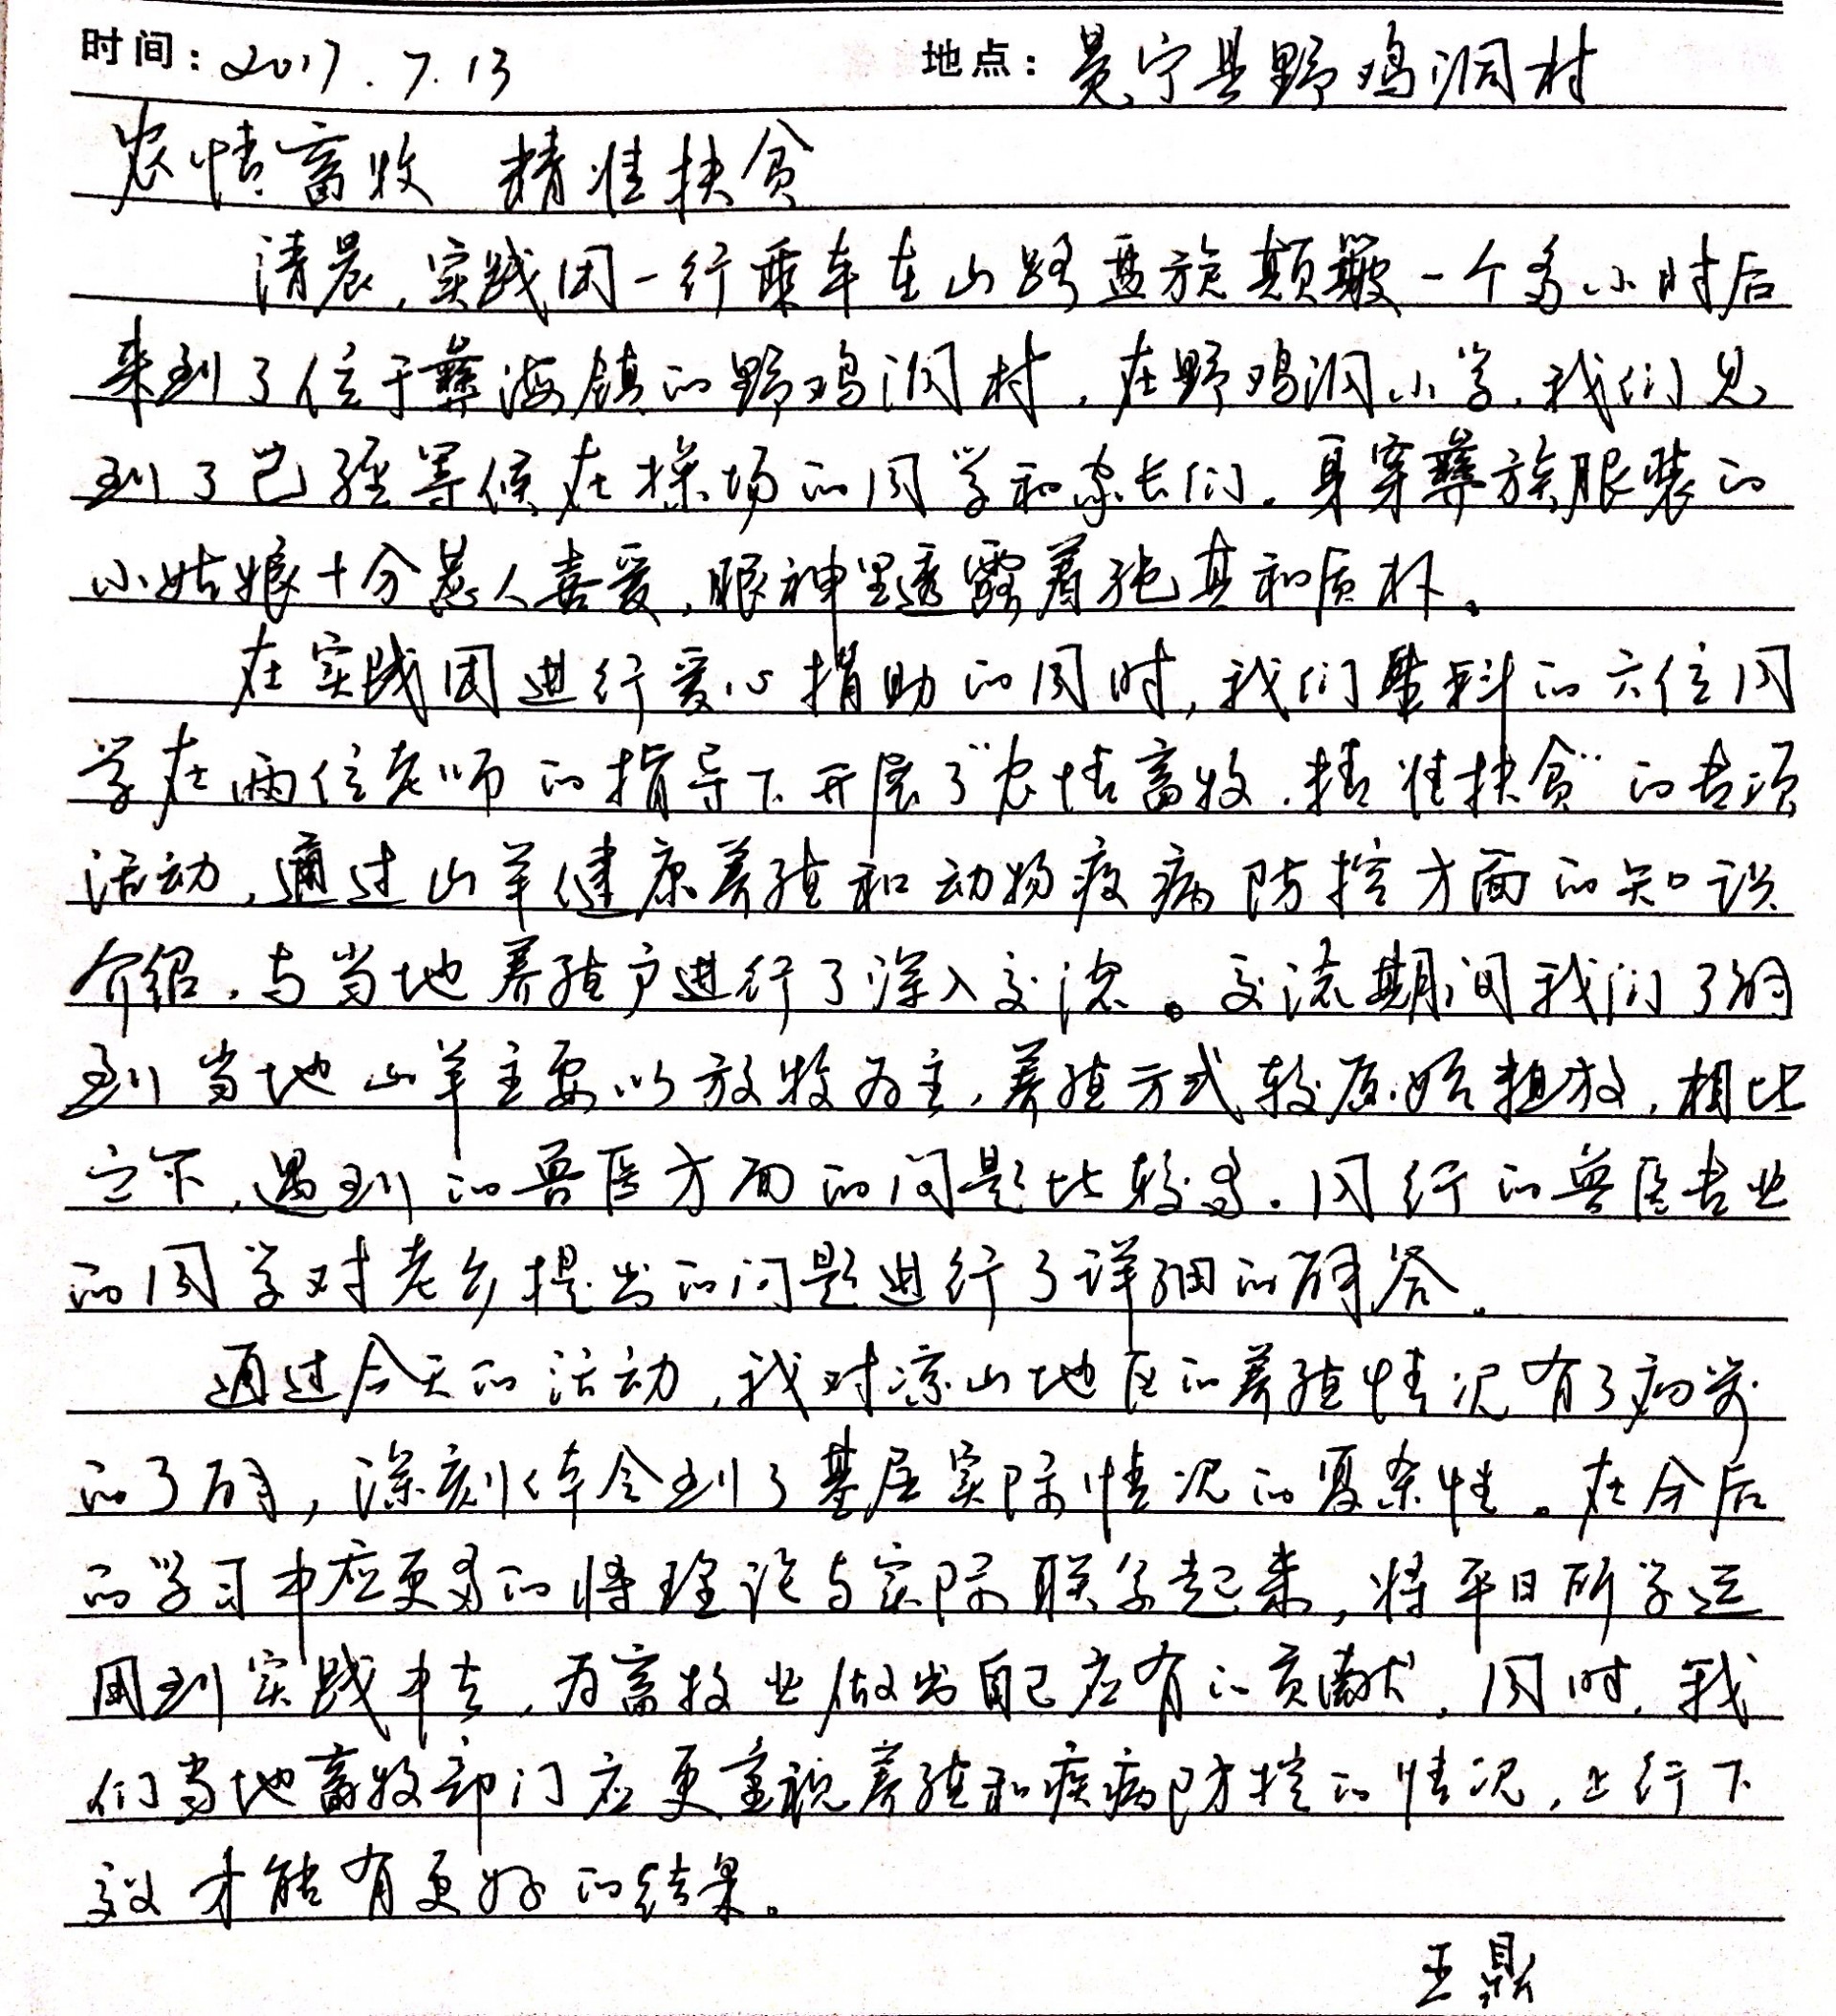 时间：2017.7.13 地点：冕宁县野鸡洞村
农情畜牧 精准扶贫
清晨，实践团一行乘车在山路盘旋颠簸一个多小时后
来到了位于彝海镇的野鸡洞村，在野鸡洞小学，我们见
到了已经等候在操场的同学和家长们。身穿彝族服装的
小姑娘十分惹人喜爱，眼神里透露着纯真和质朴。
在实践团进行爱心捐助的同时，我们动科的六位同
学在两位老师的指导下开展了“农情畜牧，精准扶贫”的专项
活动，通过山羊健康养殖和动物疫病防控方面的知识
介绍，与当地养殖户进行了深入交流。交流期间我们了解
到当地山羊主要以放牧为主，养殖方式较原始粗放，相比
之下，遇到的兽医方面的问题比较多。同行的兽医专业
的同学对老乡提出的问题进行了详细的解答。
通过今天的活动，我对凉山地区的养殖情况有了初步
的了解，深刻体会到了基层实际情况的复杂性。在今后
的学习中应更多的将理论与实际联系起来，将平日所学运
用到实践中去，为畜牧业做出自己应有的贡献，同时，我
们当地畜牧部门应更重视养殖和疾病防控的情况，上行下
效才能有更好的结果。
王鼎